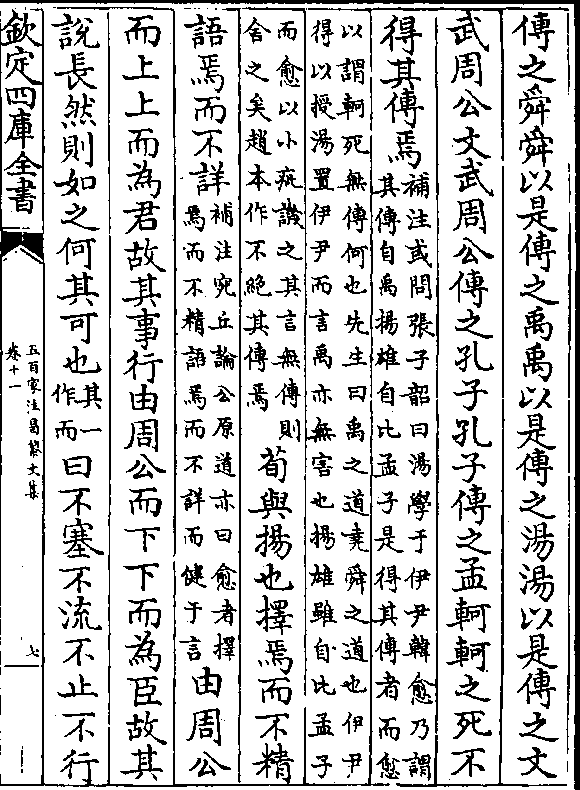 傳之舜舜以是傳之禹禹以是傳之湯湯以是傳之文
武周公文武周公傳之孔子孔子傳之孟軻軻之死不
得其傳焉
補注或問張子韶曰湯學于伊尹韓愈乃謂
其傳自禹揚雄自比孟子是得其傳者而愈
以謂軻死無傳何也先生曰禹之道堯舜之道也伊尹
得以授湯置伊尹而言禹亦無害也揚雄雖自比孟子
而愈以小疵譏之其言無傳則
舍之矣趙本作不絕其傳焉
荀與揚也擇焉而不精
語焉而不詳
補注宛丘論公原道亦曰愈者擇
焉而不精語焉而不詳而健于言
由周公
而上上而為君故其事行由周公而下下而為臣故其
說長然則如之何其可也
其一
作而
曰不塞不流不止不行
欽定四庫全書
五百家注昌黎文集
卷十一
七